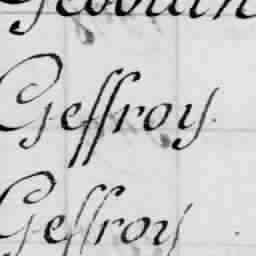 Geffroy.
Geffroy